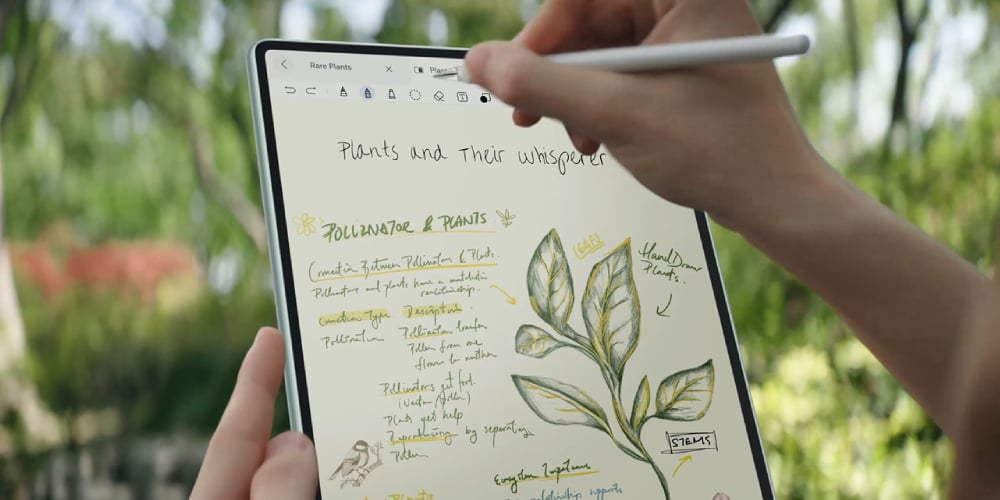 Rare Plants
Plant
Plants and Their whisperer
POLLINATOR & PLANTS
LEAFS
Hand Draw
Plants.
Connection Between Pollinators & Plants.
Pollinators and plants have a mutualistic
relationship.
Connection Type Description.
Pollination Pollinators transfer
Pollen from one
flower to another
Pollinators get food.
(Nectar / Pollen)
Plants get help
Reproducing by separating
Pollen.
STEMS
Ecosystem Importance
relationship supports
Plants